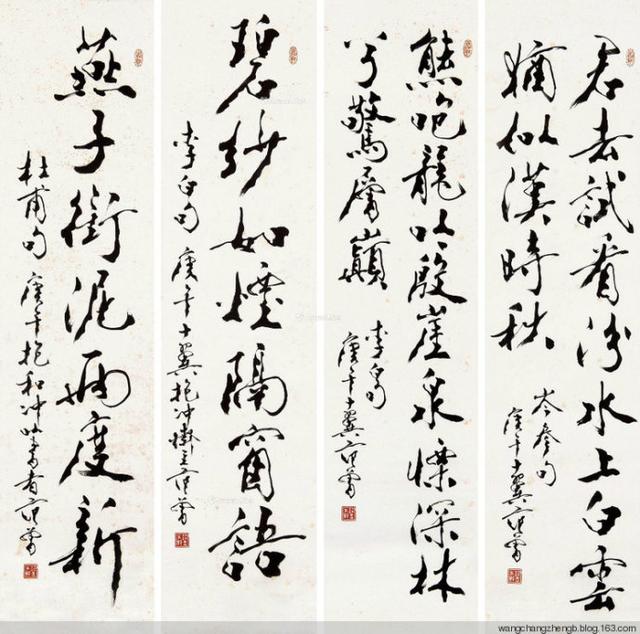 君去試看汾水上白雲
猶似漢時秋
岑參句
庚午十翼范曾
熊咆龍吟殷崖泉慄深林
兮驚層巔
李白句
庚午十翼范曾
碧紗如煙隔窗語
李白句 庚午十翼抱冲齋主范曾
燕子銜泥兩度新
杜甫句 庚午抱和冲 范曾
wangchangzhengb.blog.163.com